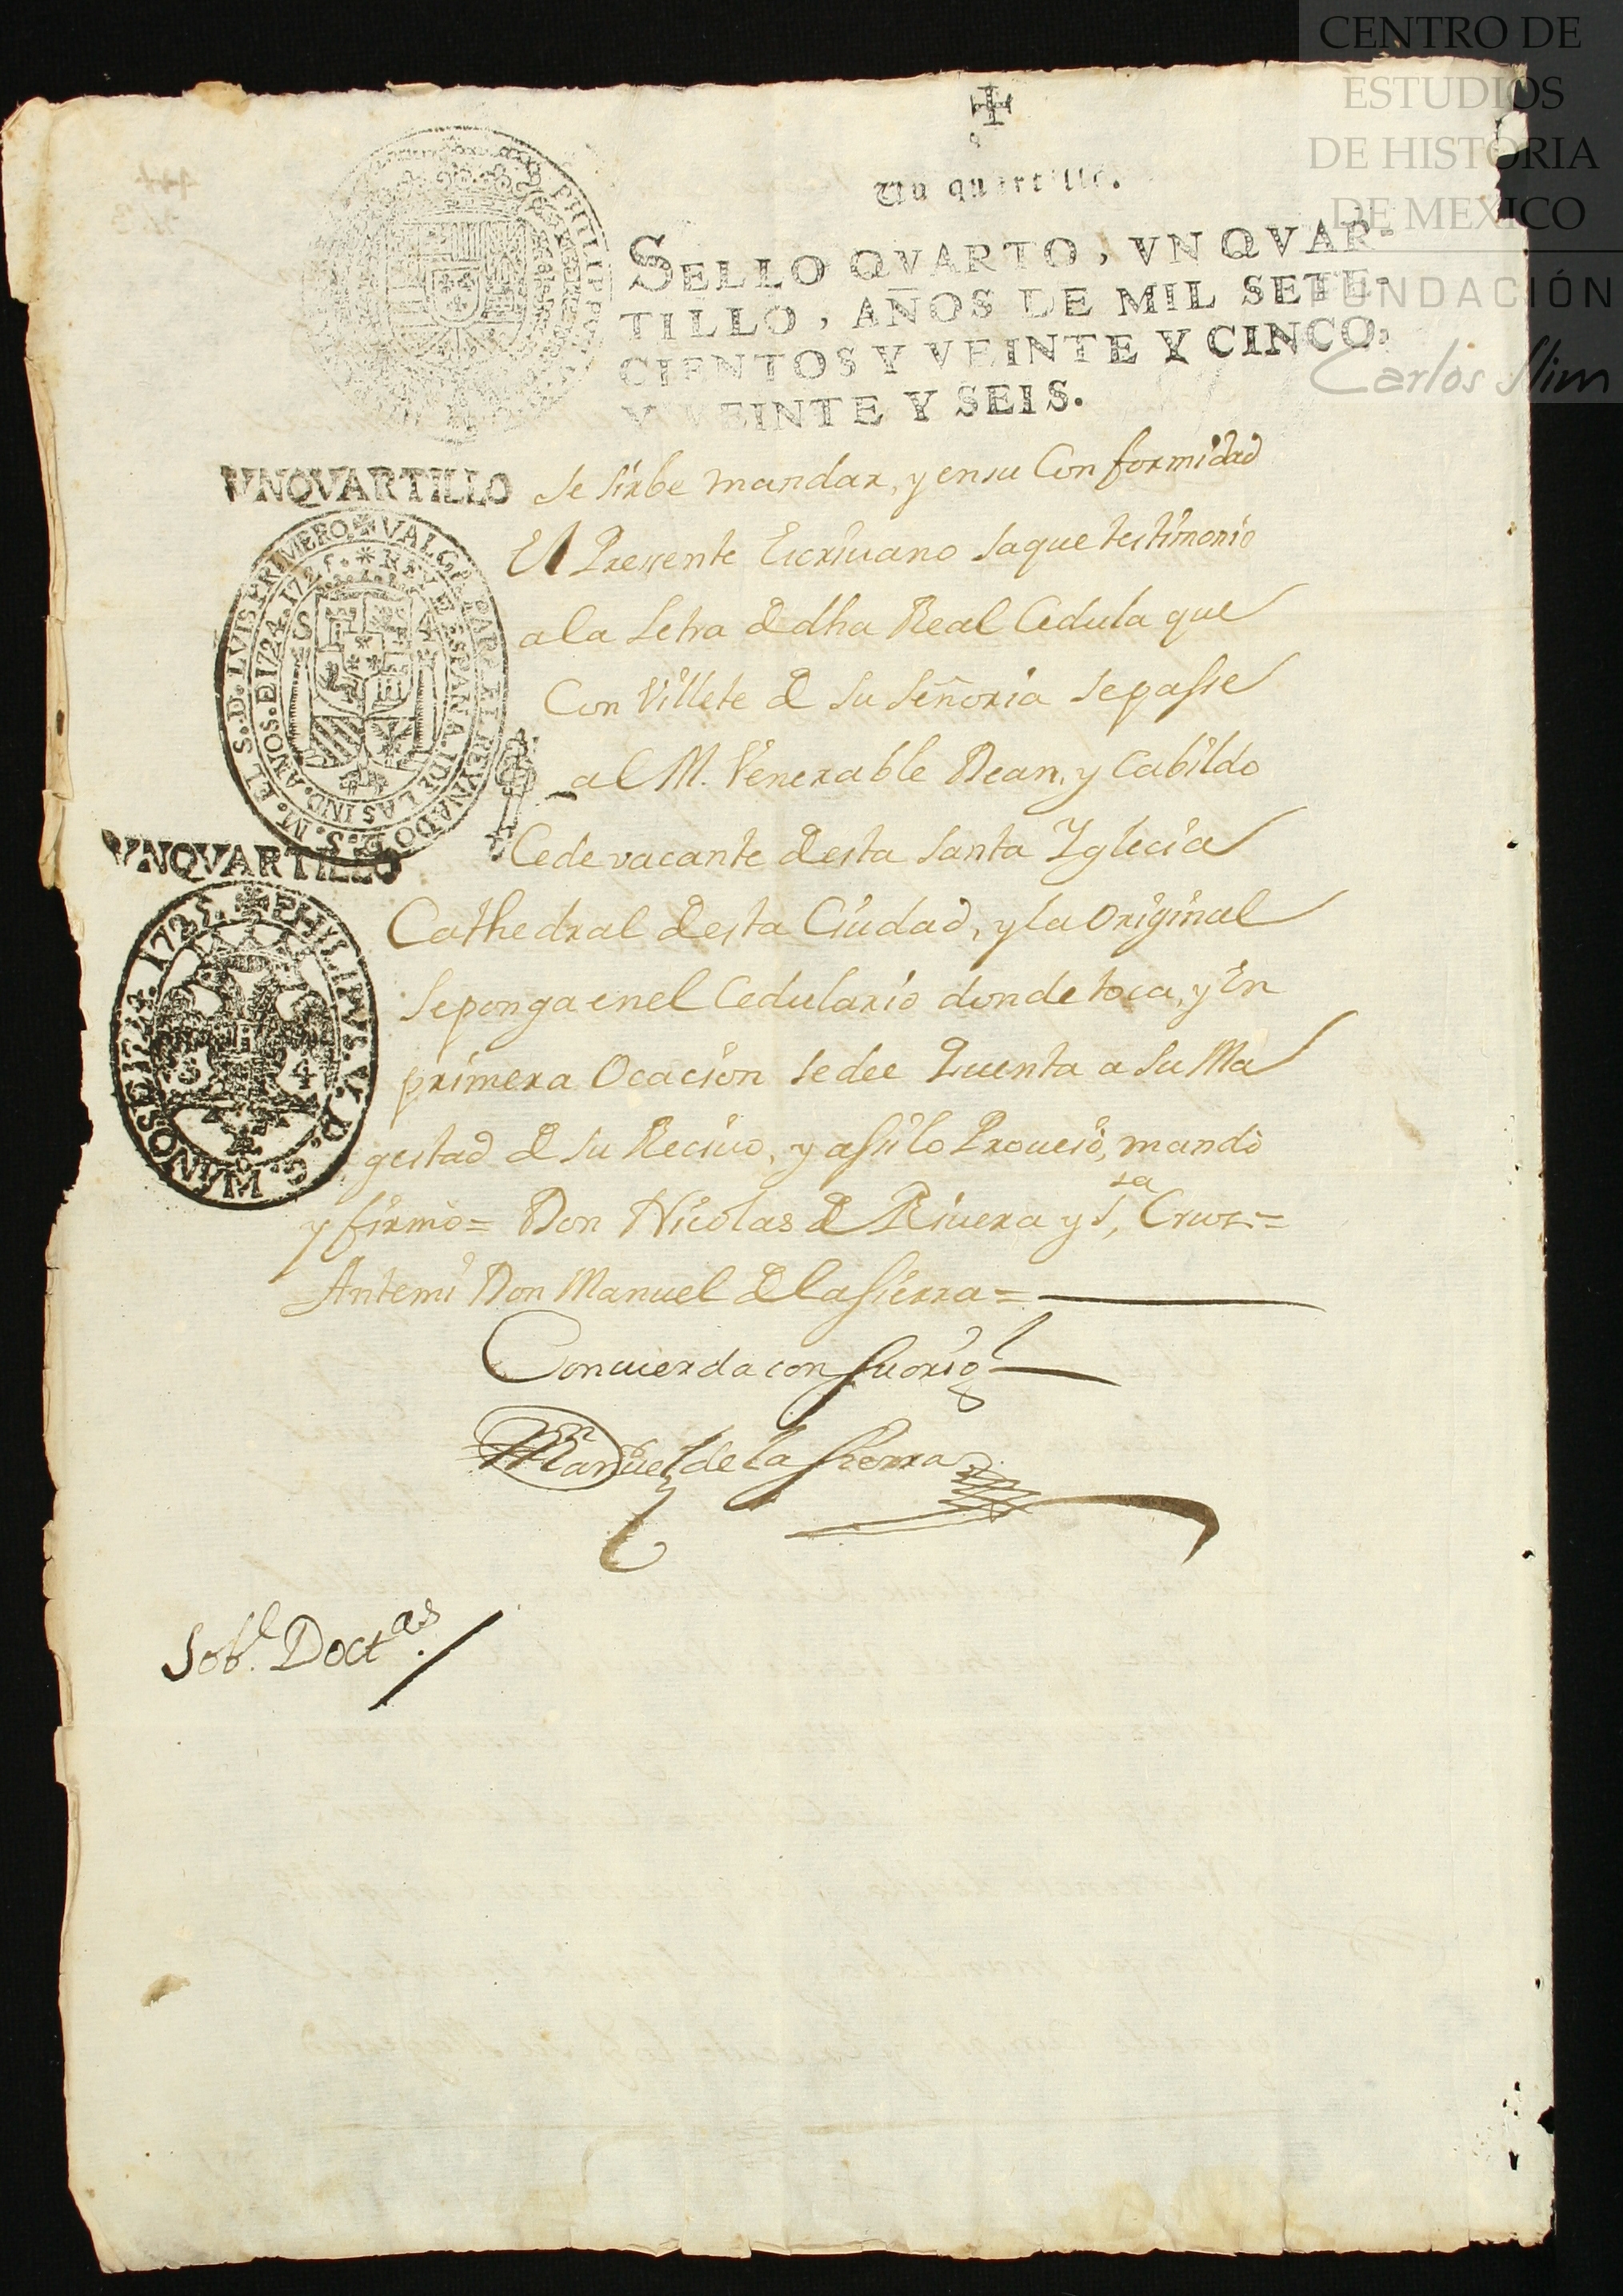 CENTRO DE
ESTUDIOS
DE HISTORIA
DE MEXICO
FUNDACIÓN
Carlos Slim
Un quartillo.
SELLO QVARTO, VN QVAR-
TILLO, AÑOS DE MIL SETE-
CIENTOS Y VEINTE Y CINCO,
Y VEINTE Y SEIS.
VNQVARTILLO
VALGA PARA EL REYNADO D. S. M. EL S. D. LVIS PRIMERO
REY D ESPAÑA I DE LAS IND. AÑOS. DE 1724. 1725.
S 4
VNQVARTILLO
PHILIPVS. V. D. G.
1724. 1725.
S 4
Se sirbe mandar, y en su Conformidad
El Presente Escrivano saque testimonio
a la Letra d dha Real Cedula que
Con Villete d Su Señoria se passe
al M. Venerable Dean, y Cabildo
Cede vacante desta Santa Yglecia
Cathedral desta Ciudad, y la Original
Se ponga en el Cedulario donde toca, y en
primera Ocacion se dee Quenta a Su Ma
gestad d Su Recivo, y assi lo Proueiò, mandò
y firmò = Don Nicolas d Rivera y S,ta Cruz =
Antemi Don Manuel d la Sierra =
Concuerda con su origl
Manuel de la Sierra
Sobl. Doctas.